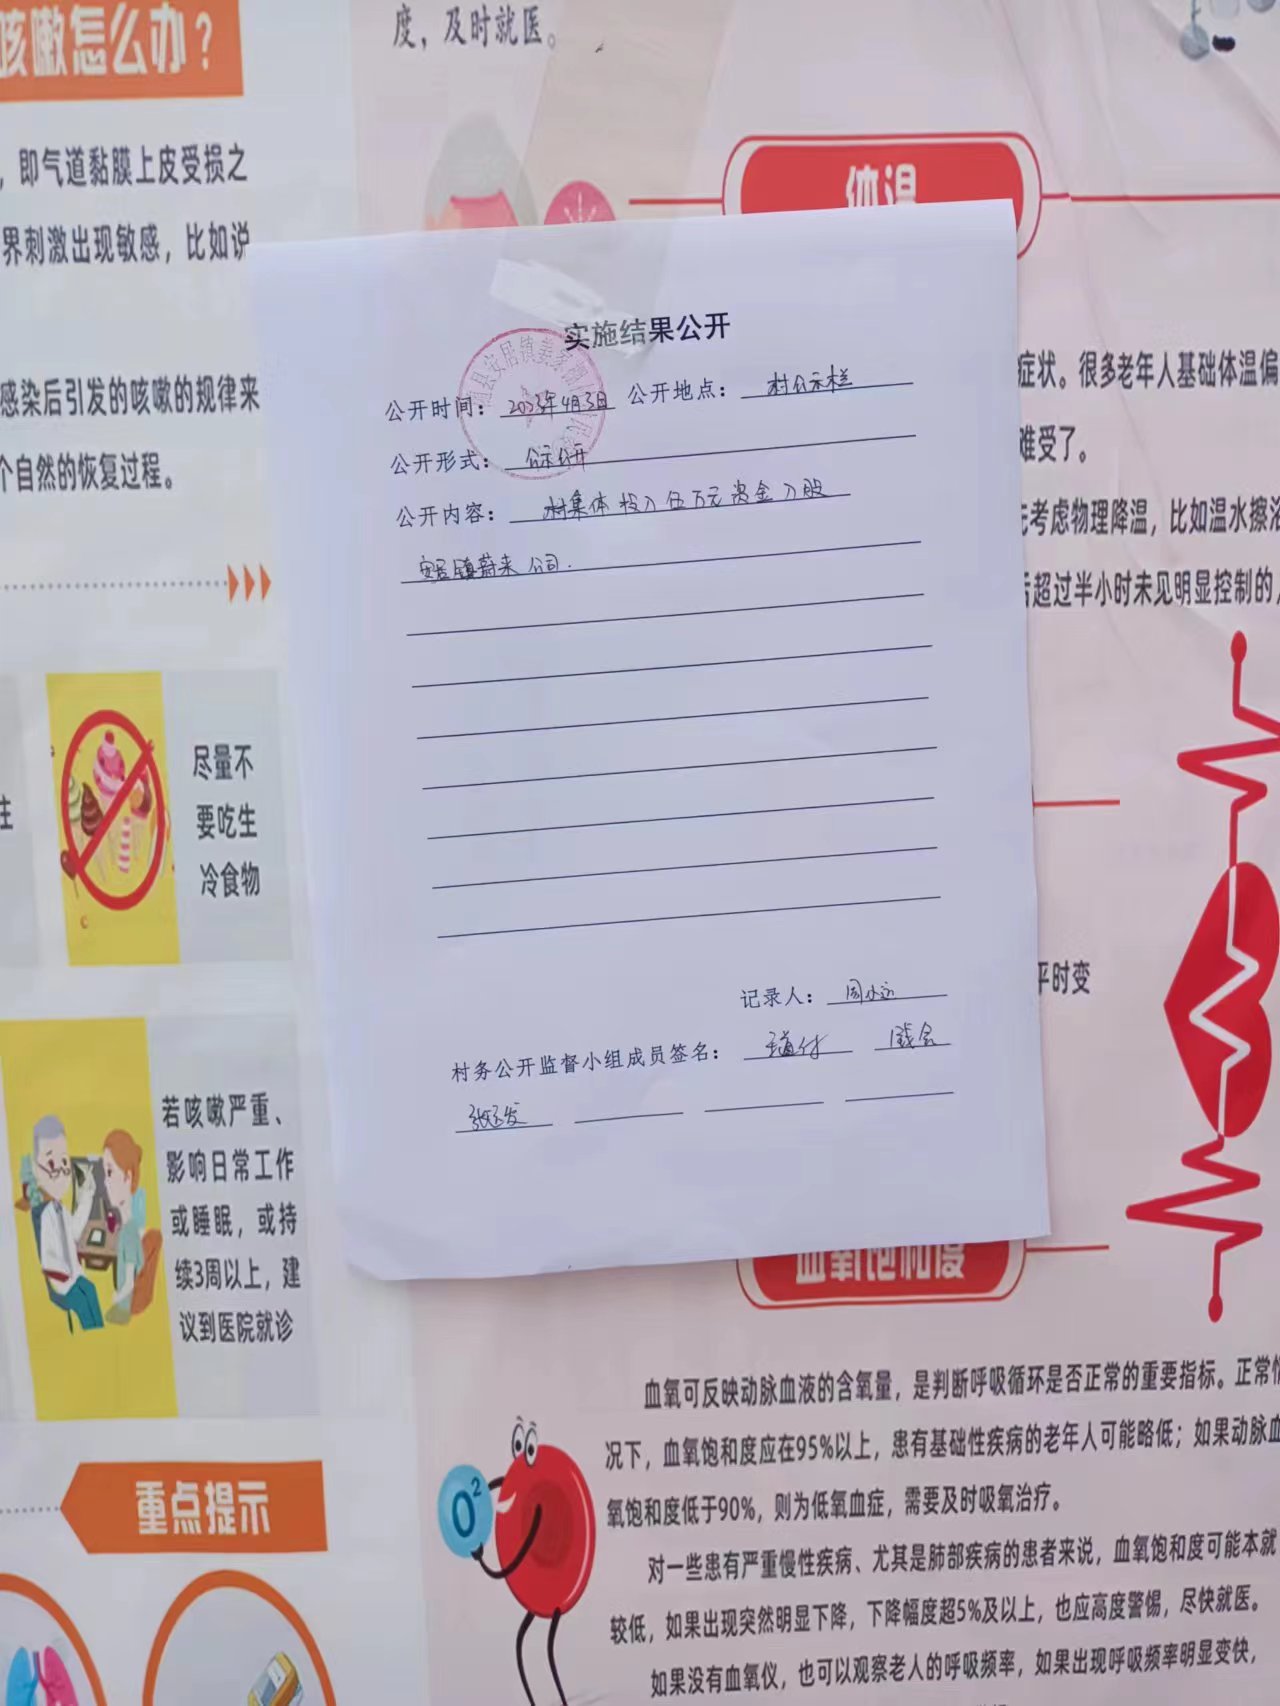 咳嗽怎么办？
，即气道黏膜上皮受损之
界刺激出现敏感，比如说
感染后引发的咳嗽的规律来
个自然的恢复过程。
尽量不
要吃生
冷食物
若咳嗽严重、
影响日常工作
或睡眠，或持
续3周以上，建
议到医院就诊
重点提示
度，及时就医。
体温
实施结果公开
公开时间：2023年4月3日 公开地点：村公示栏
公开形式：公示公开
公开内容：村集体投入伍万元资金入股
安居镇蔚来公司.
记录人：周小运
村务公开监督小组成员签名：
症状。很多老年人基础体温偏
难受了。
考虑物理降温，比如温水擦浴
后超过半小时未见明显控制的，
平时变
血氧饱和度
血氧可反映动脉血液的含氧量，是判断呼吸循环是否正常的重要指标。正常情
况下，血氧饱和度应在95%以上，患有基础性疾病的老年人可能略低；如果动脉血
氧饱和度低于90%，则为低氧血症，需要及时吸氧治疗。
对一些患有严重慢性疾病、尤其是肺部疾病的患者来说，血氧饱和度可能本就
较低，如果出现突然明显下降，下降幅度超5%及以上，也应高度警惕，尽快就医。
如果没有血氧仪，也可以观察老人的呼吸频率，如果出现呼吸频率明显变快，
O²